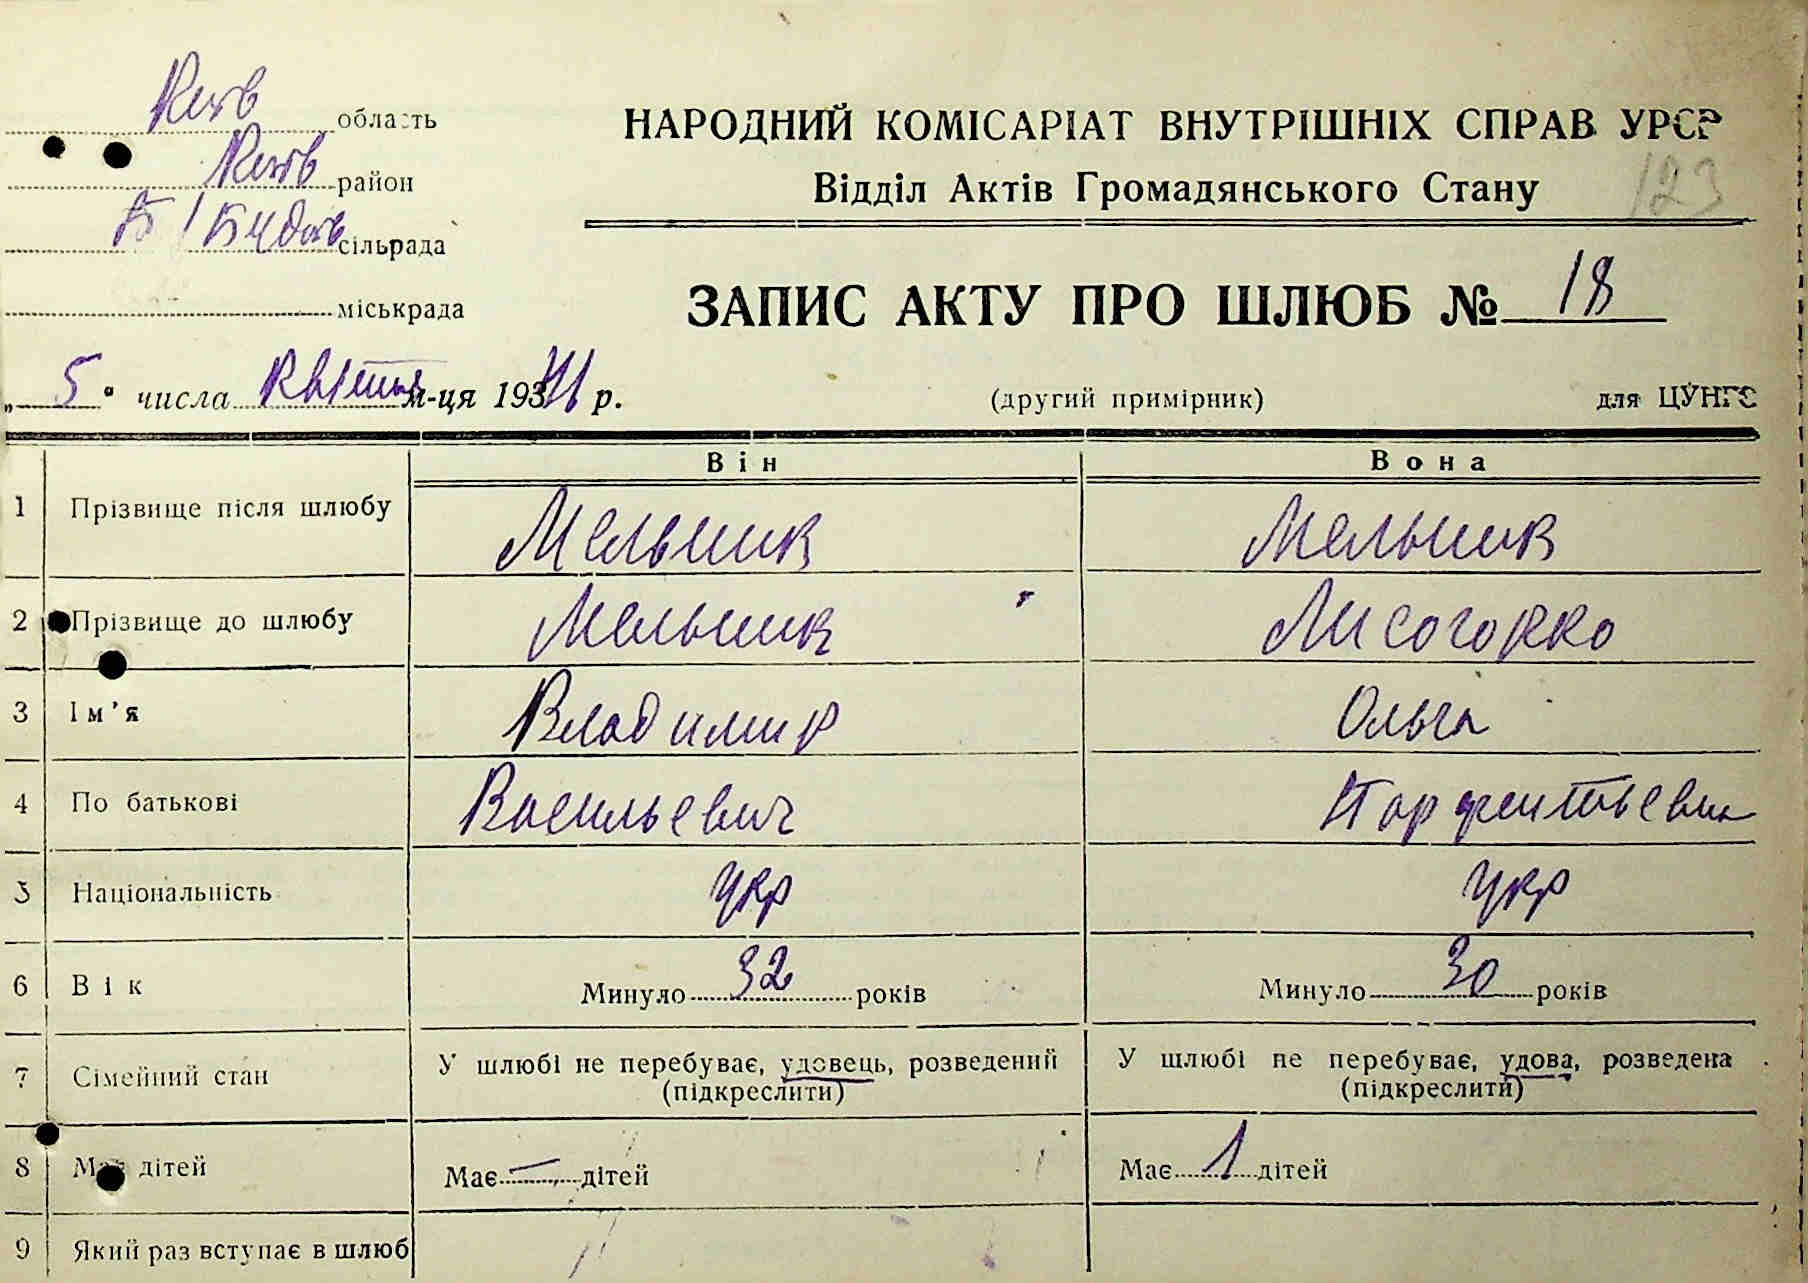 Київ область
Київ район
П/Будаїв сільрада
міськрада
НАРОДНИЙ КОМІСАРІАТ ВНУТРІШНІХ СПРАВ УРСР
Відділ Актів Громадянського Стану
123
ЗАПИС АКТУ ПРО ШЛЮБ № 18
„ 5 " числа Квітня м-ця 1941 р.
(другий примірник)
для ЦУНГО
Він Вона
1 Прізвище після шлюбу Мельник Мельник
2 Прізвище до шлюбу Мельник Лисогорко
3 Ім'я Владимир Ольга
4 По батькові Васильевич Парфентьевна
5 Національність укр укр
6 Вік Минуло 32 років Минуло 30 років
7 Сімейний стан У шлюбі не перебуває, удовець, розведений У шлюбі не перебуває, удова, розведена
(підкреслити) (підкреслити)
8 Має дітей Має — дітей Має 1 дітей
9 Який раз вступає в шлюб